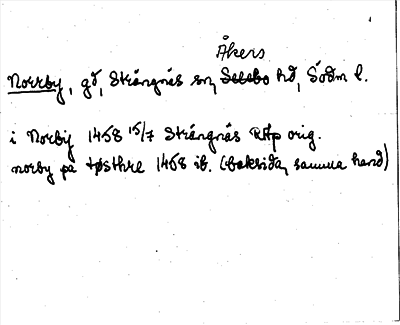 Åkers
Norrby, gd, Strängnäs sn, Selebo hd, Södm l.
i Norby 1458 15/7 Strängnäs RAp orig.
norby pa tøsthre 1458 ib. (baksida, samma hand)